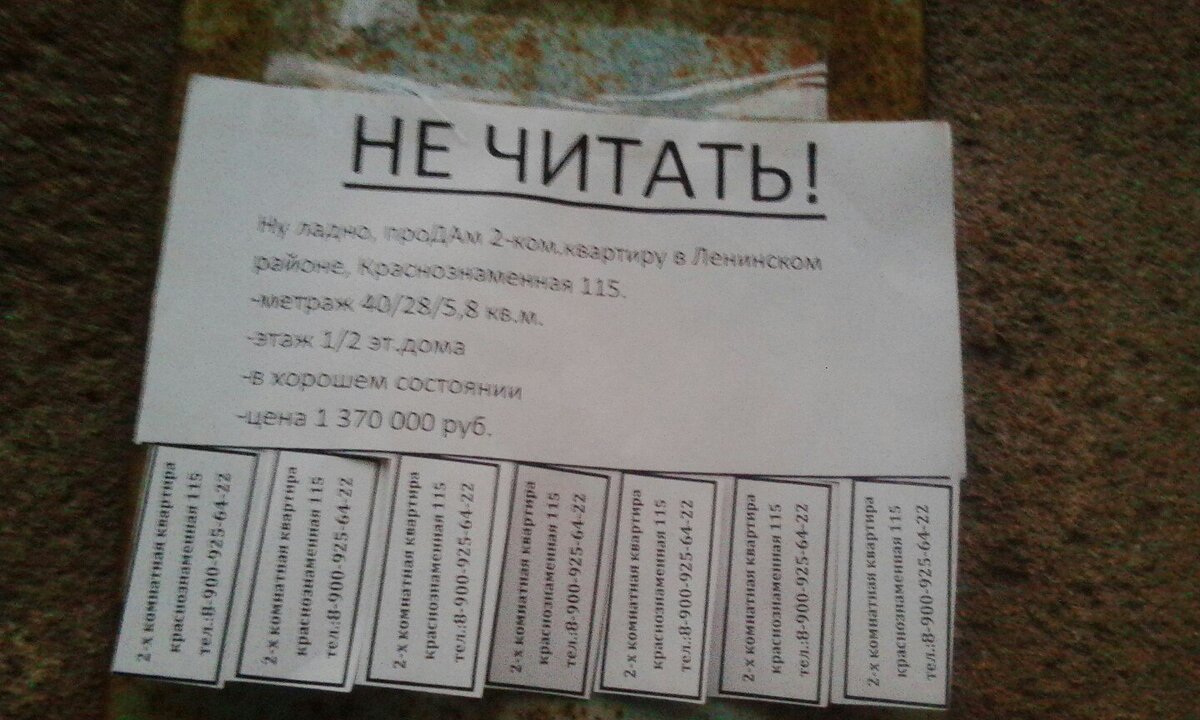 НЕ ЧИТАТЬ!
Ну ладно, проДАм 2-ком.квартиру в Ленинском
районе, Краснознаменная 115.
-метраж 40/28/5,8 кв.м.
-этаж 1/2 эт.дома
-в хорошем состоянии
-цена 1 370 000 руб.
2-х комнатная квартира
краснознаменная 115
тел.:8-900-925-64-22
2-х комнатная квартира
краснознаменная 115
тел.:8-900-925-64-22
2-х комнатная квартира
краснознаменная 115
тел.:8-900-925-64-22
2-х комнатная квартира
краснознаменная 115
тел.:8-900-925-64-22
2-х комнатная квартира
краснознаменная 115
тел.:8-900-925-64-22
2-х комнатная квартира
краснознаменная 115
тел.:8-900-925-64-22
2-х комнатная квартира
краснознаменная 115
тел.:8-900-925-64-22